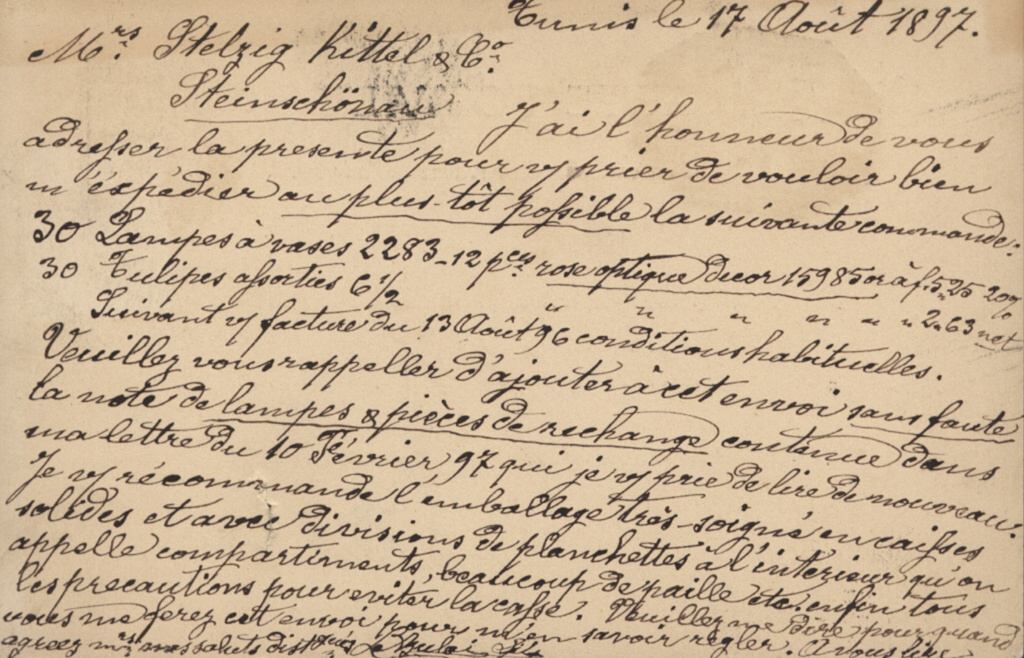 Tunis le 17 Août 1897.
Mrs. Stelzig Kittel & Co.
Steinschönau
J'ai l'honneur de vous
adresser la presente pour vs prier de vouloir bien
m'éxpédier au plus-tôt possible la suivante commande:
30 Lampes à vases 2283-12 pces rose optique decor 15985 or à f. 5,25 - 20%
30 Tulipes assorties 6 1/2 " " " " " " 2"63 net
Suivant vs facture du 13 Août 96 conditions habituelles.
Veuillez vous rappeller d'ajouter à cet envoi sans faute
la note de lampes & pièces de rechange contenue dans
ma lettre du 10 Février 97 qui je vs prie de lire de nouveau.
Je vs récommande l'emballage très-soigné en caisses
solides et avec divisions de planchettes à l'interieur qu'on
appelle compartiments, beaucoup de paille etc. enfin tous
les precautions pour eviter la casse. Veuillez me dire pour quand
vous me ferez cet envoi pour m'en savoir règler. A vous lire
agreez mrs. mes saluts distingués